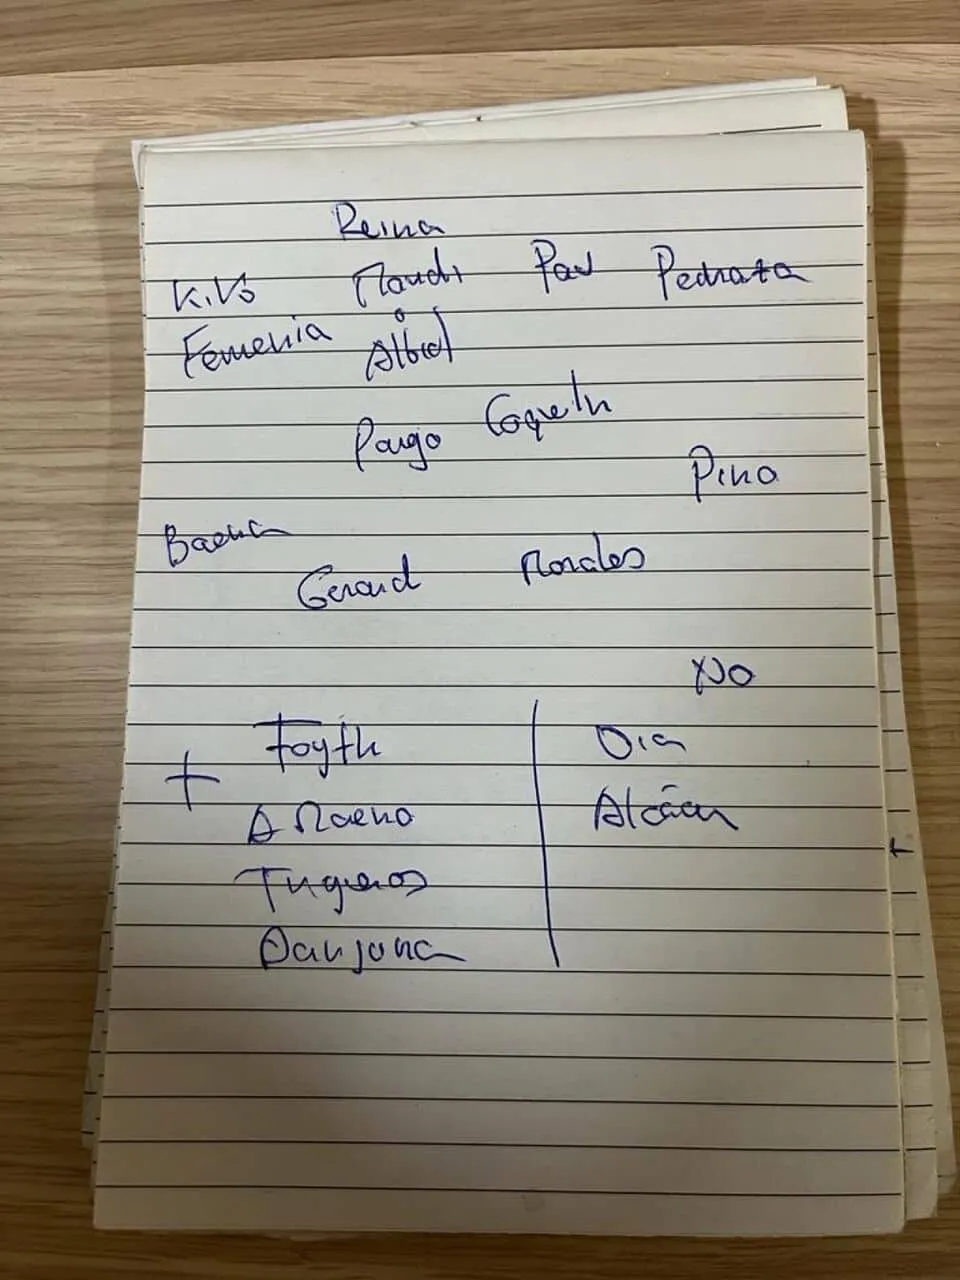 Reina
K.Ko Mandi Pau Pedraza
Femenia o Albiol
Parejo Coquelin
Pino
Baena
Gerard Morales
No
+ Foyth Dia
A Moreno Alcácer
Trigueros
Danjuma